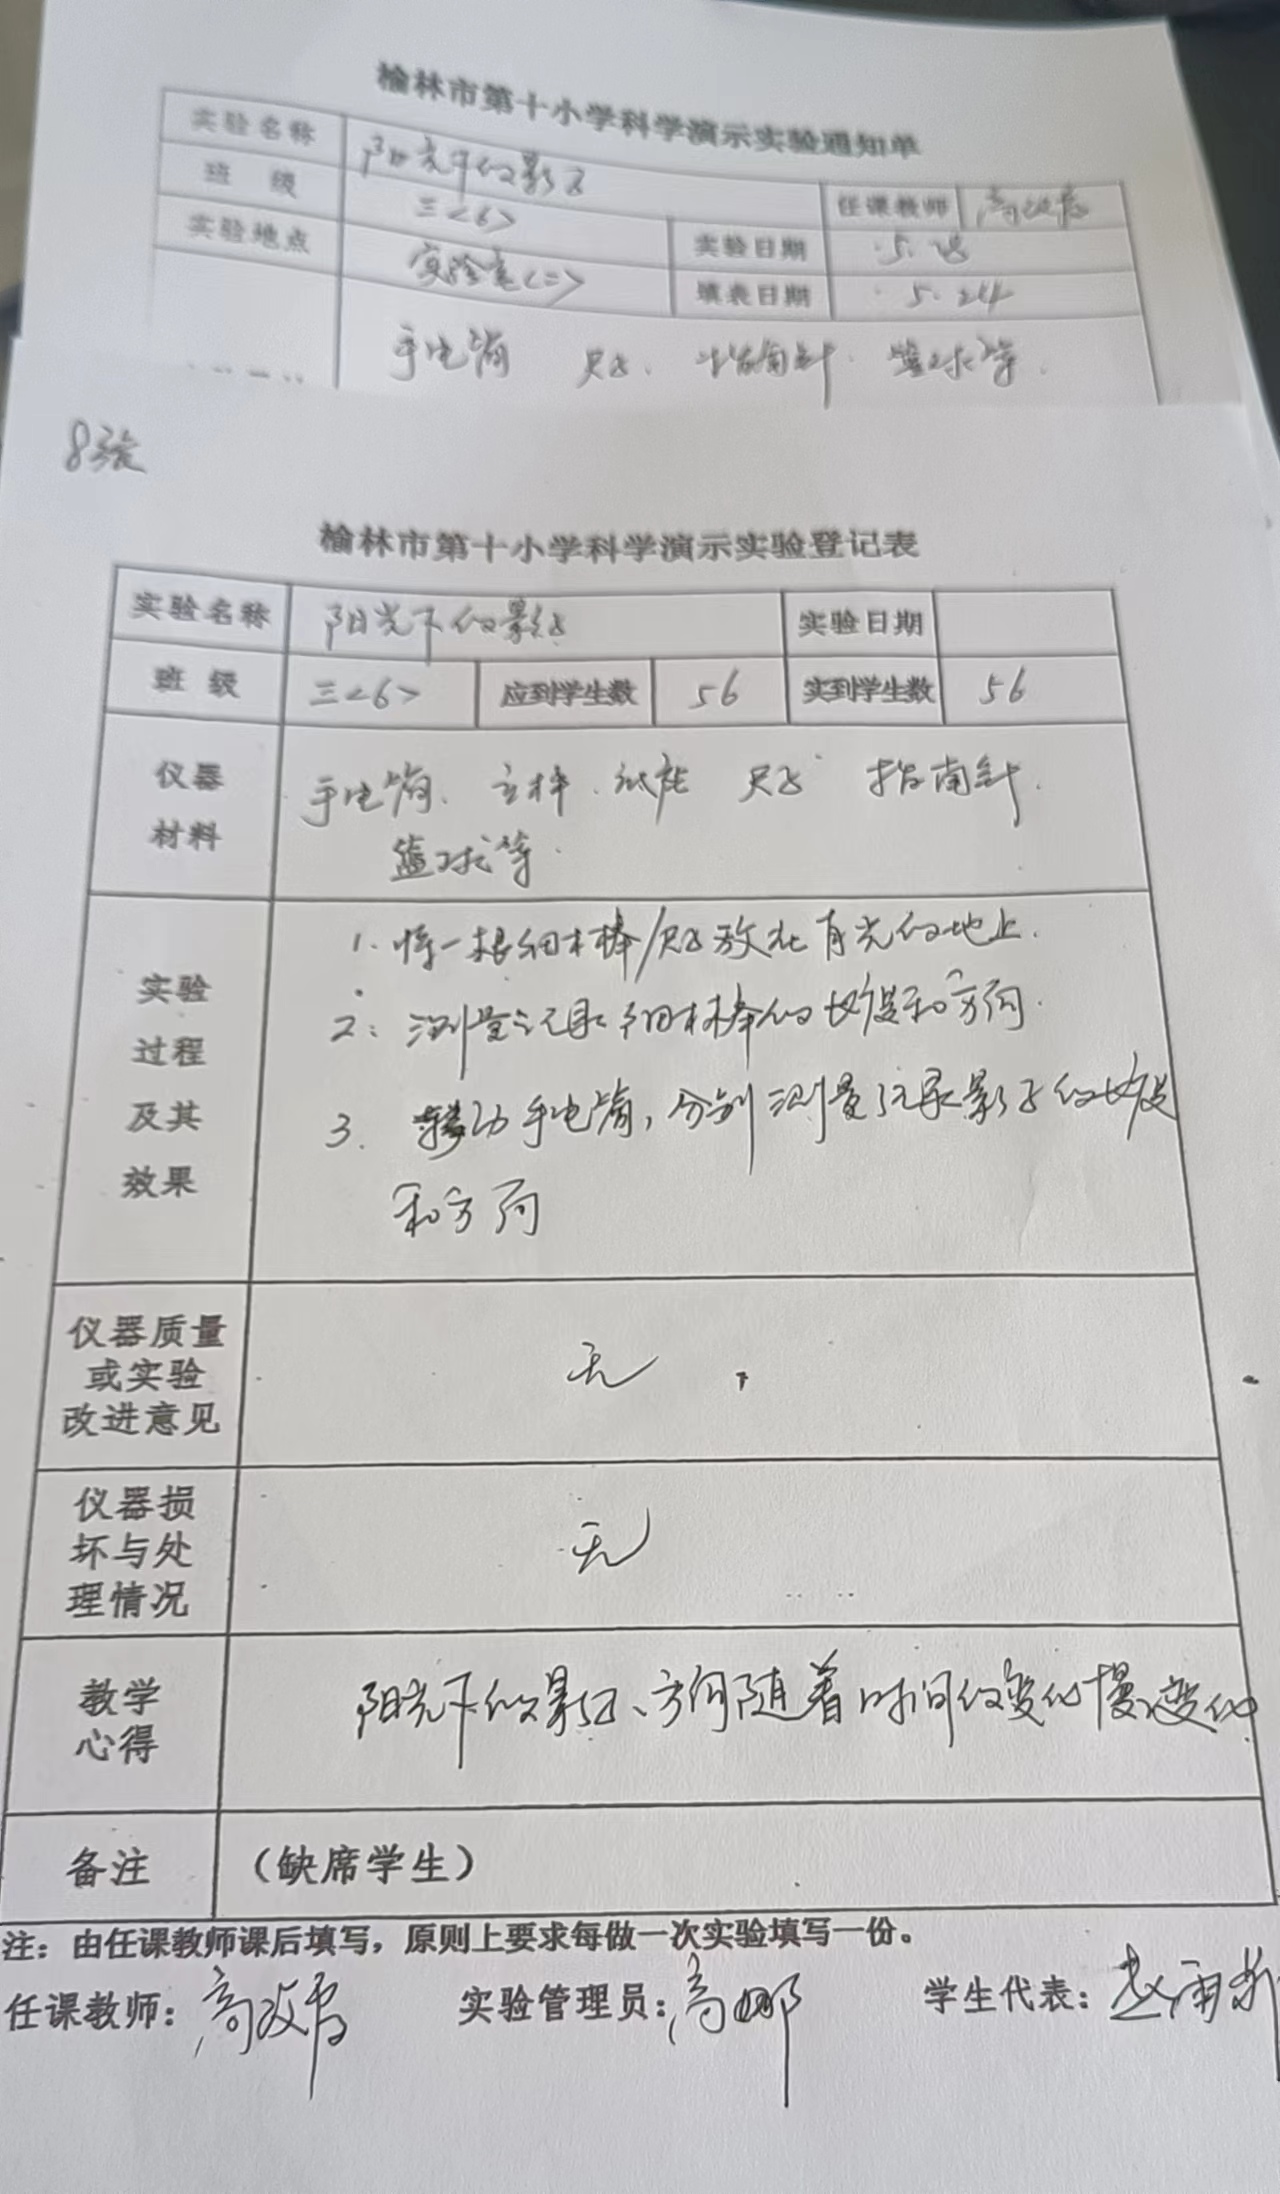 榆林市第十小学科学演示实验通知单
实验名称 阳光下的影子
班 级 三<6> 任课教师
实验地点 实验室<二> 实验日期 5.28
填表日期 5.24
手电筒 尺子. 指南针. 篮球等.
8张
榆林市第十小学科学演示实验登记表
实验名称 阳光下的影子 实验日期
班 级 三<6> 应到学生数 56 实到学生数 56
仪器 手电筒. 立杆. 底座 尺子 指南针.
材料 篮球等.
实验 过程 及其 效果
1. 将一根细木棒/尺子放在有光的地上.
2: 测量记录细木棒的长度和方向.
3. 转动手电筒, 分别测量记录影子的长度
和方向
仪器质量
或实验 无
改进意见
仪器损
坏与处 无
理情况
教学 阳光下的影子、方向随着时间的变化慢慢变化
心得
备注 （缺席学生）
注：由任课教师课后填写，原则上要求每做一次实验填写一份。
任课教师： 实验管理员：高娜 学生代表：